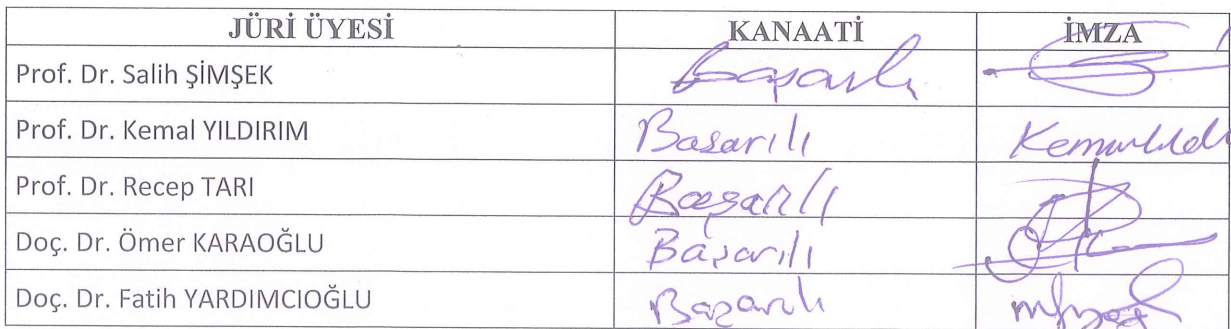 JÜRİ ÜYESİ KANAATİ İMZA
Prof. Dr. Salih ŞİMŞEK Başarılı
Prof. Dr. Kemal YILDIRIM Basarılı
Prof. Dr. Recep TARI Başarılı
Doç. Dr. Ömer KARAOĞLU Başarılı
Doç. Dr. Fatih YARDIMCIOĞLU Başarılı